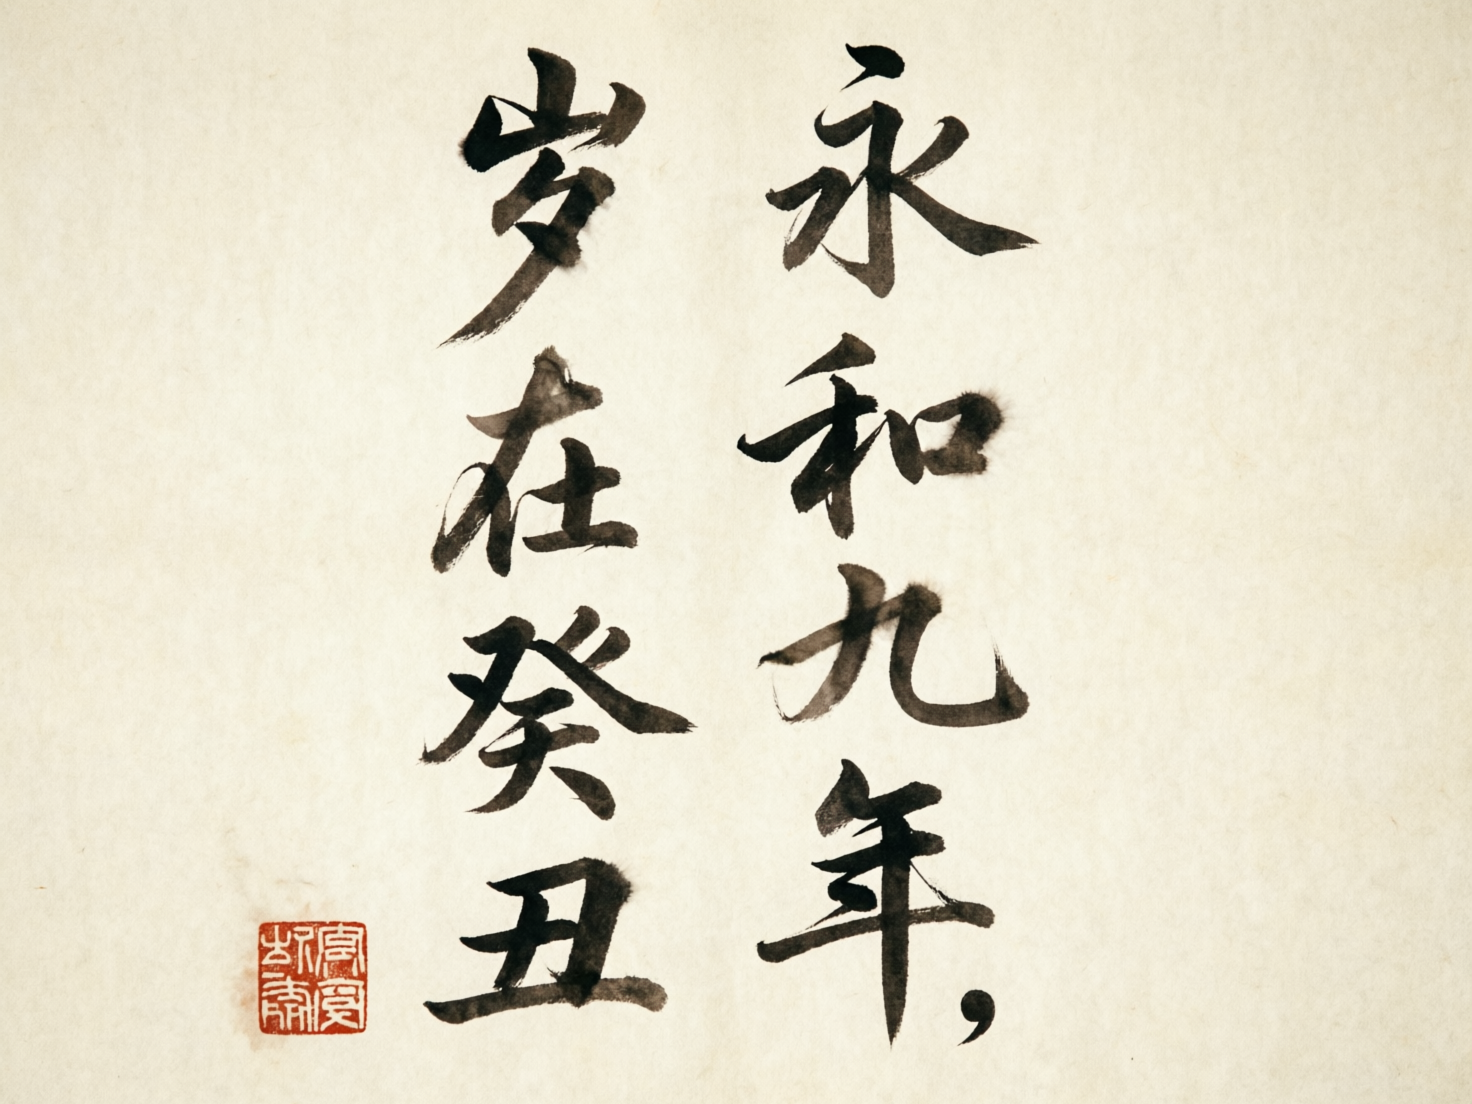 永和九年，
岁在癸丑